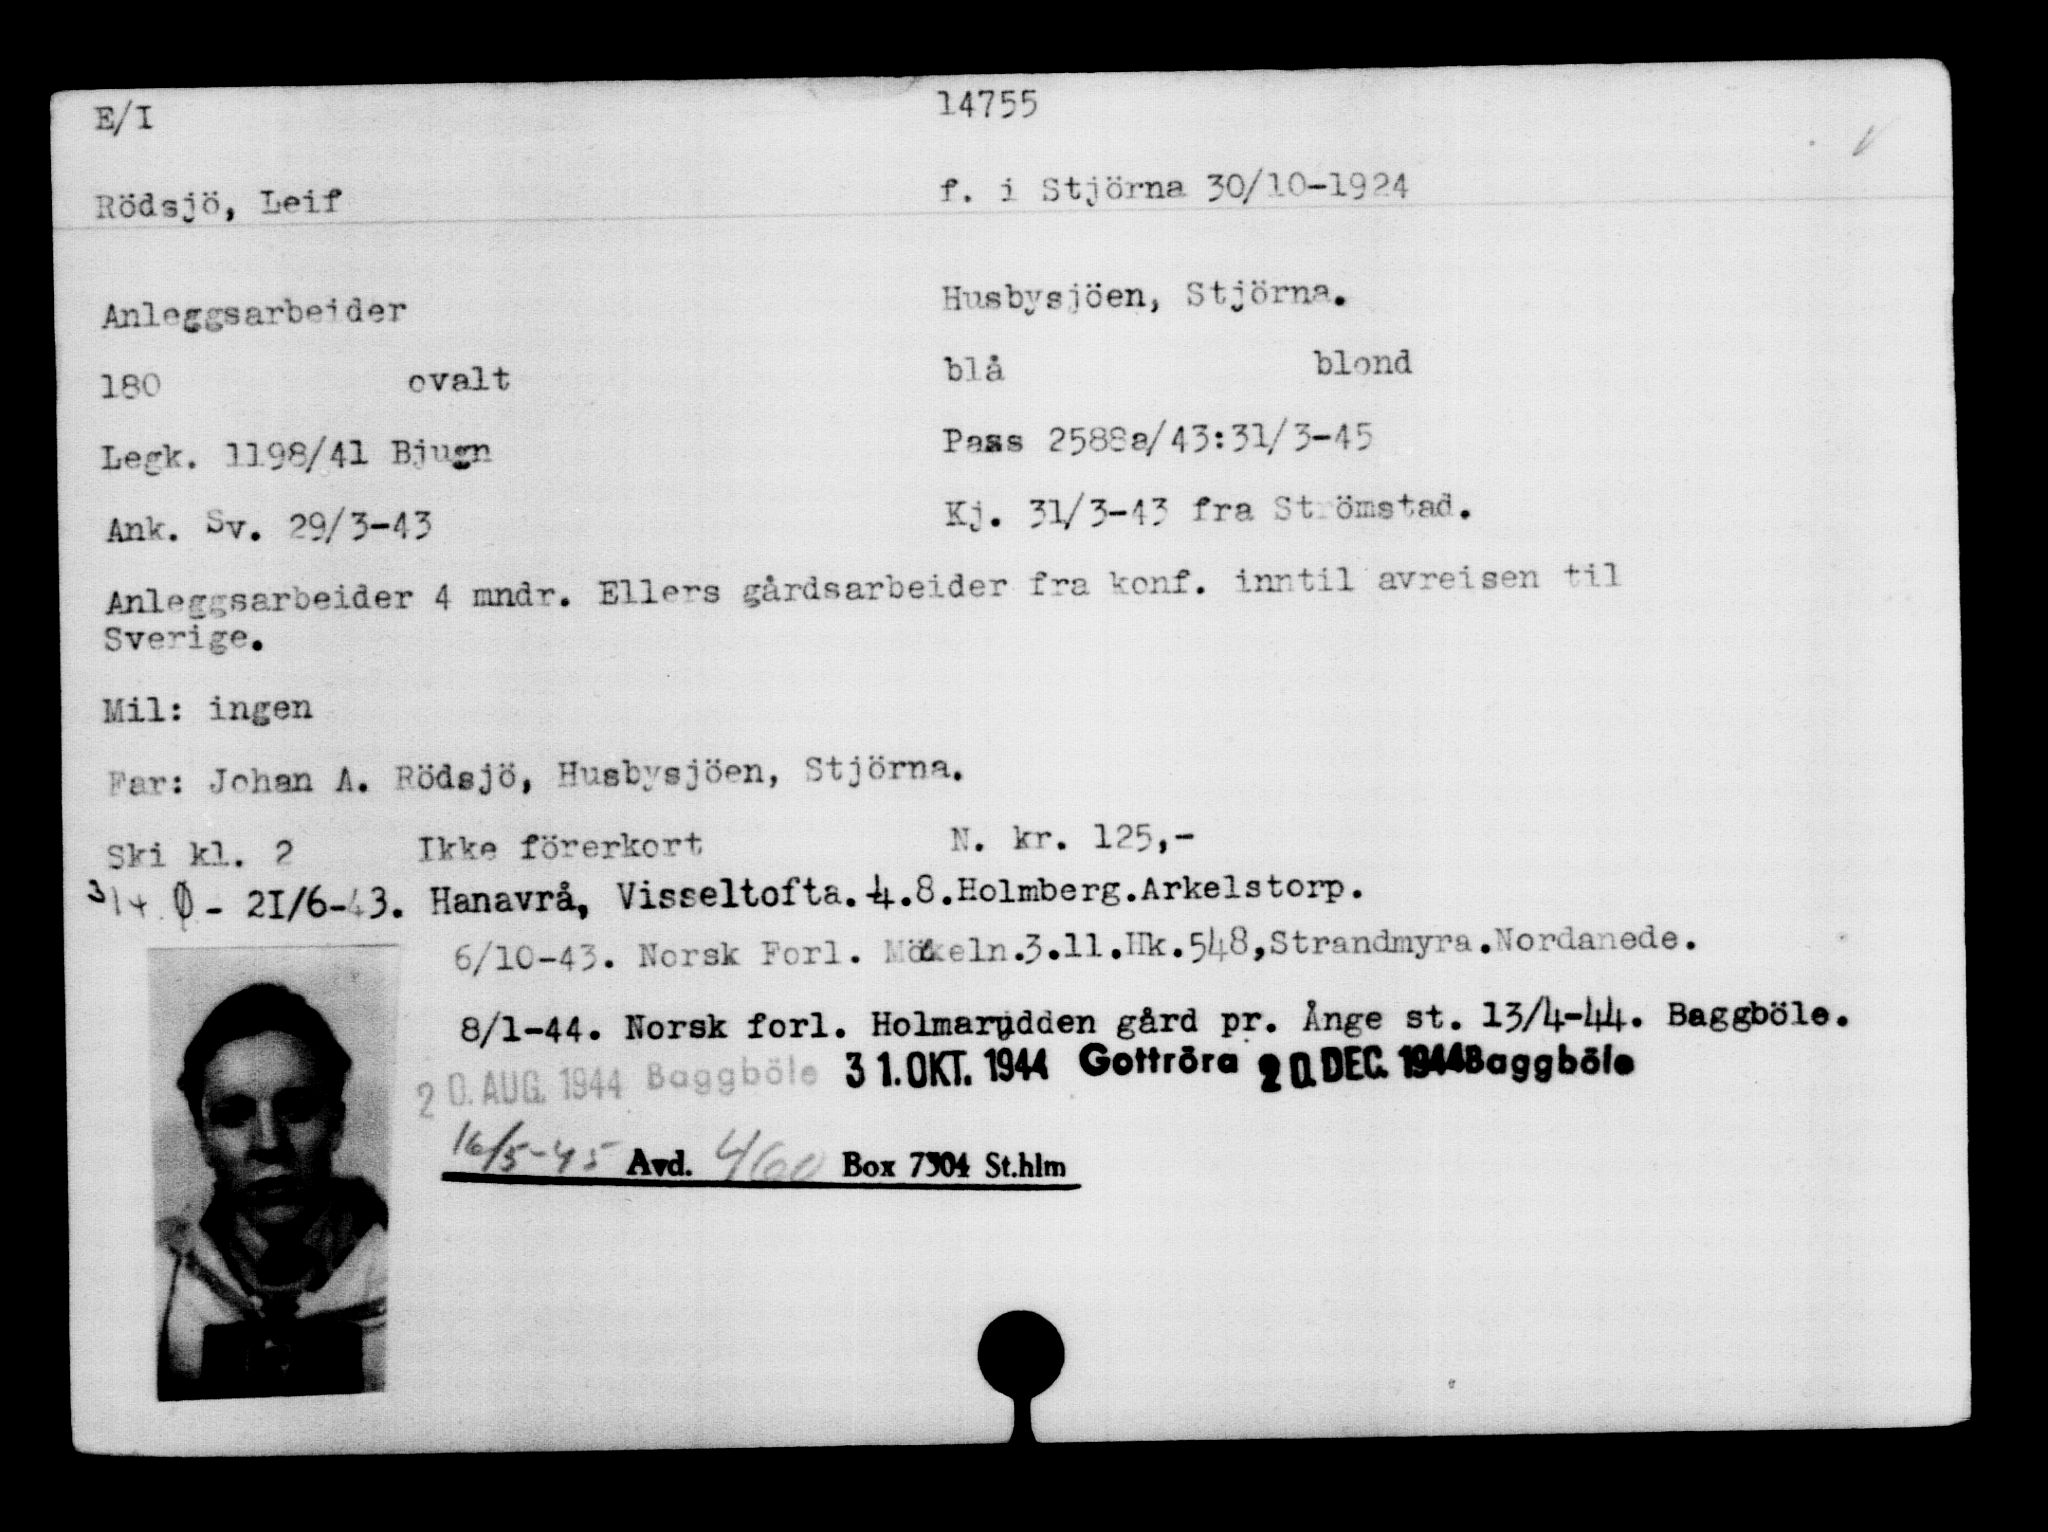 E/I 14755
Rödsjö, Leif f. i Stjörna 30/10-1924
Anleggsarbeider Husbysjöen, Stjörna.
180 ovalt blå blond
Legk. 1198/41 Bjugn Pass 2588a/43:31/3-45
Ank. Sv. 29/3-43 Kj. 31/3-43 fra Strömstad.
Anleggsarbeider 4 mndr. Ellers gårdsarbeider fra konf. inntil avreisen til
Sverige.
Mil: ingen
Far: Johan A. Rödsjö, Husbysjöen, Stjörna.
Ski kl. 2 Ikke förerkort N. kr. 125,-
- 21/6-43. Hanavrå, Visseltofta.4.8.Holmberg.Arkelstorp.
6/10-43. Norsk Forl. Möckeln.3.11.Hk.548,Strandmyra.Nordanede.
8/1-44. Norsk forl. Holmarudden gård pr. Ånge st. 13/4-44. Baggböle.
20. AUG. 1944 Baggböle 31. OKT. 1944 Gottröra 20. DEC. 1944 Baggböle
16/5-45 Avd. 460 Box 7304 St.hlm